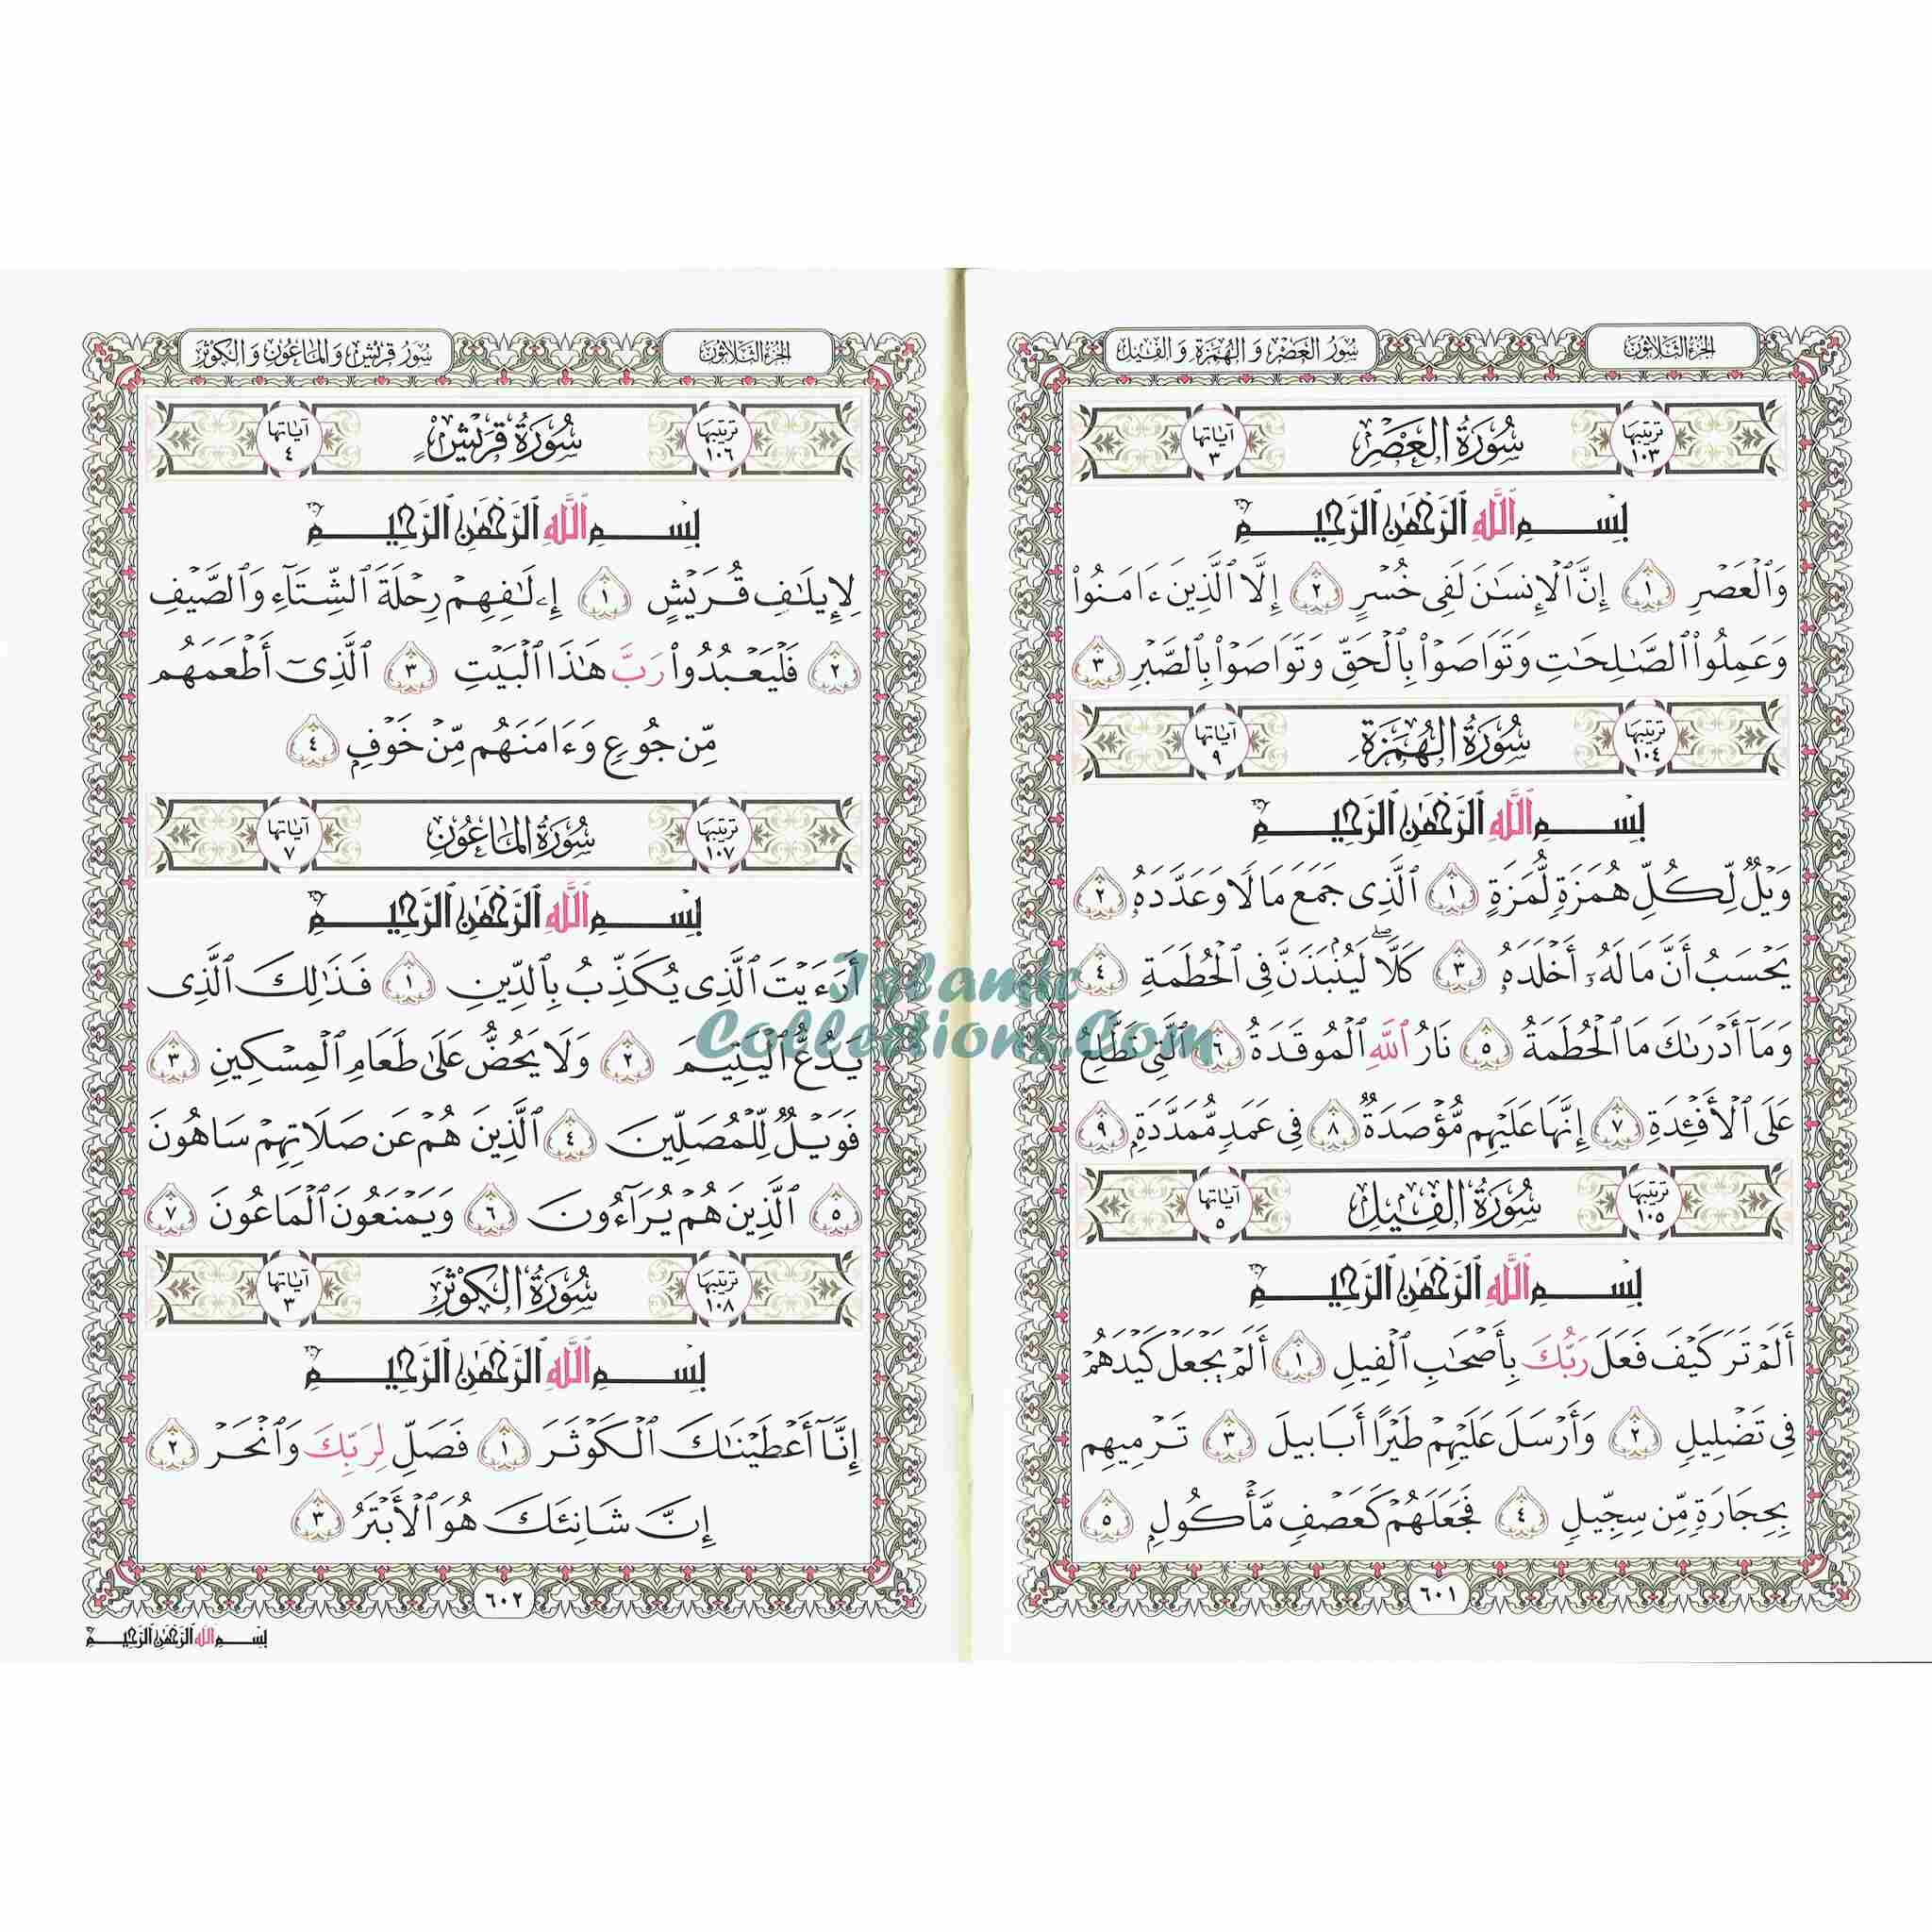 الجزء الثلاثون
سور العصر و الهمزة و الفيل
ترتيبها ١٠٣
سُورَةُ العَصْرِ
آياتها ٣
بِسْمِ ٱللَّهِ ٱلرَّحْمَٰنِ ٱلرَّحِيمِ
وَٱلْعَصْرِ ١ إِنَّ ٱلْإِنسَٰنَ لَفِى خُسْرٍ ٢ إِلَّا ٱلَّذِينَ ءَامَنُوا۟
وَعَمِلُوا۟ ٱلصَّٰلِحَٰتِ وَتَوَاصَوْا۟ بِٱلْحَقِّ وَتَوَاصَوْا۟ بِٱلصَّبْرِ ٣
ترتيبها ١٠٤
سُورَةُ الهُمَزَةِ
آياتها ٩
بِسْمِ ٱللَّهِ ٱلرَّحْمَٰنِ ٱلرَّحِيمِ
وَيْلٌ لِّكُلِّ هُمَزَةٍ لُّمَزَةٍ ١ ٱلَّذِى جَمَعَ مَالًا وَعَدَّدَهُۥ ٢
يَحْسَبُ أَنَّ مَالَهُۥٓ أَخْلَدَهُۥ ٣ كَلَّا ۖ لَيُنۢبَذَنَّ فِى ٱلْحُطَمَةِ ٤
وَمَآ أَدْرَىٰكَ مَا ٱلْحُطَمَةُ ٥ نَارُ ٱللَّهِ ٱلْمُوقَدَةُ ٦ ٱلَّتِى تَطَّلِعُ
عَلَى ٱلْأَفْـِٔدَةِ ٧ إِنَّهَا عَلَيْهِم مُّؤْصَدَةٌ ٨ فِى عَمَدٍ مُّمَدَّدَةٍۭ ٩
ترتيبها ١٠٥
سُورَةُ الفِيلِ
آياتها ٥
بِسْمِ ٱللَّهِ ٱلرَّحْمَٰنِ ٱلرَّحِيمِ
أَلَمْ تَرَ كَيْفَ فَعَلَ رَبُّكَ بِأَصْحَٰبِ ٱلْفِيلِ ١ أَلَمْ يَجْعَلْ كَيْدَهُمْ
فِى تَضْلِيلٍ ٢ وَأَرْسَلَ عَلَيْهِمْ طَيْرًا أَبَابِيلَ ٣ تَرْمِيهِم
بِحِجَارَةٍ مِّن سِجِّيلٍ ٤ فَجَعَلَهُمْ كَعَصْفٍ مَّأْكُولٍۭ ٥
٦٠١
الجزء الثلاثون
سور قريش والماعون والكوثر
ترتيبها ١٠٦
سُورَةُ قُرَيْشٍ
آياتها ٤
بِسْمِ ٱللَّهِ ٱلرَّحْمَٰنِ ٱلرَّحِيمِ
لِإِيلَٰفِ قُرَيْشٍ ١ إِۦلَٰفِهِمْ رِحْلَةَ ٱلشِّتَآءِ وَٱلصَّيْفِ
٢ فَلْيَعْبُدُوا۟ رَبَّ هَٰذَا ٱلْبَيْتِ ٣ ٱلَّذِىٓ أَطْعَمَهُم
مِّن جُوعٍ وَءَامَنَهُم مِّنْ خَوْفٍۭ ٤
ترتيبها ١٠٧
سُورَةُ المَاعُونِ
آياتها ٧
بِسْمِ ٱللَّهِ ٱلرَّحْمَٰنِ ٱلرَّحِيمِ
أَرَءَيْتَ ٱلَّذِى يُكَذِّبُ بِٱلدِّينِ ١ فَذَٰلِكَ ٱلَّذِى
يَدُعُّ ٱلْيَتِيمَ ٢ وَلَا يَحُضُّ عَلَىٰ طَعَامِ ٱلْمِسْكِينِ ٣
فَوَيْلٌ لِّلْمُصَلِّينَ ٤ ٱلَّذِينَ هُمْ عَن صَلَاتِهِمْ سَاهُونَ
٥ ٱلَّذِينَ هُمْ يُرَآءُونَ ٦ وَيَمْنَعُونَ ٱلْمَاعُونَ ٧
ترتيبها ١٠٨
سُورَةُ الكَوْثَرِ
آياتها ٣
بِسْمِ ٱللَّهِ ٱلرَّحْمَٰنِ ٱلرَّحِيمِ
إِنَّآ أَعْطَيْنَٰكَ ٱلْكَوْثَرَ ١ فَصَلِّ لِرَبِّكَ وَٱنْحَرْ ٢
إِنَّ شَانِئَكَ هُوَ ٱلْأَبْتَرُ ٣
٦٠٢
بِسْمِ ٱللَّهِ ٱلرَّحْمَٰنِ ٱلرَّحِيمِ
Islamic
Collections.Com